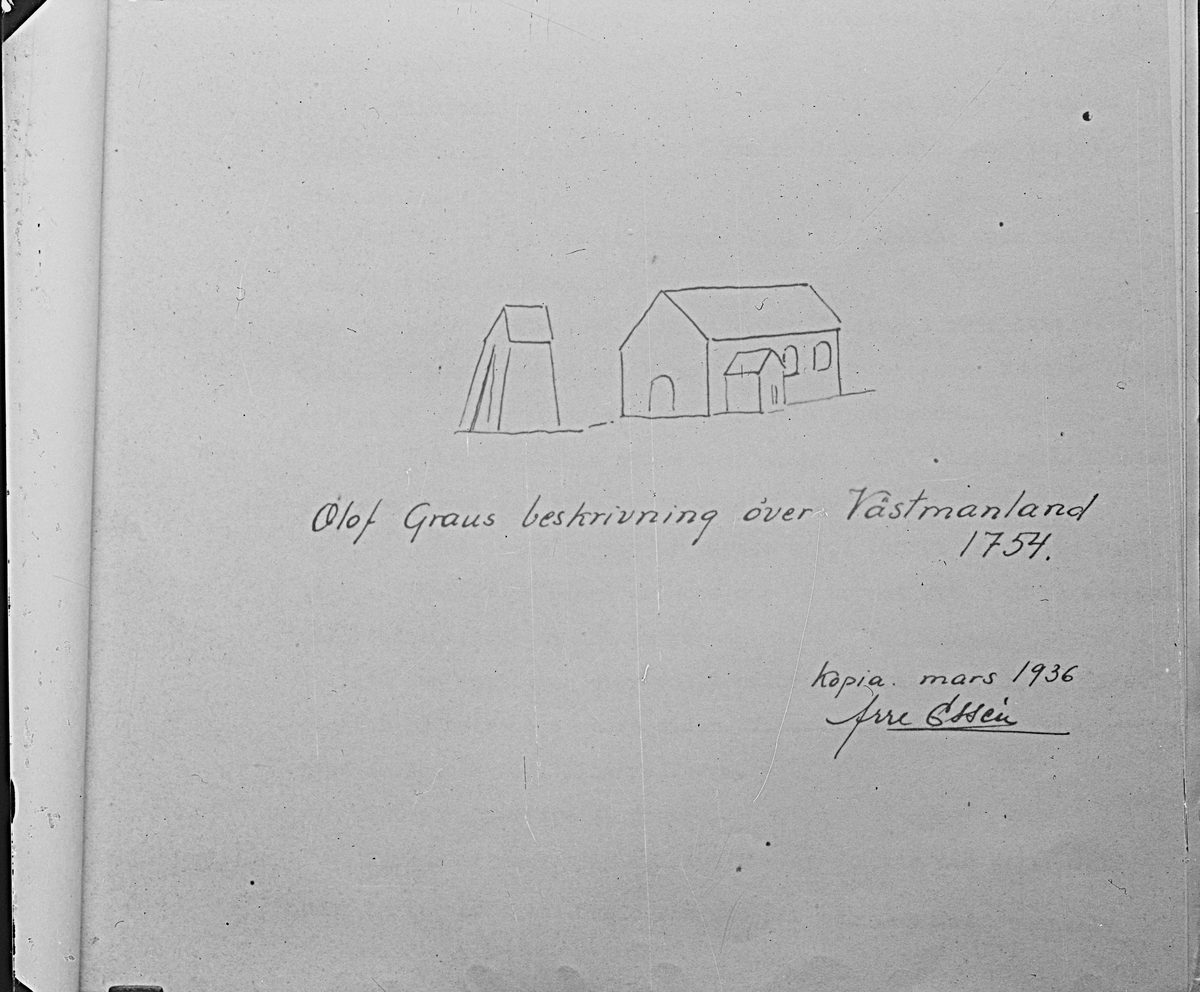 Olof Graus beskrivning över Västmanland
1754.
Kopia. mars 1936
Arre Essén